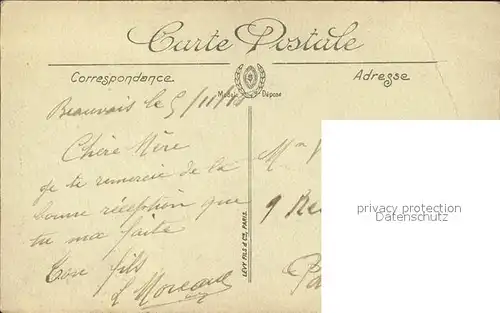 Carte Postale
Correspondance
Adresse
Modèle Déposé
Beauvais le 5/11/18
Chère Mère
je te remercie de la
bonne réception que
tu m'a faite
Ton fils
L Moreau
LÉVY FILS & Cie, PARIS
9
privacy protection
Datenschutz